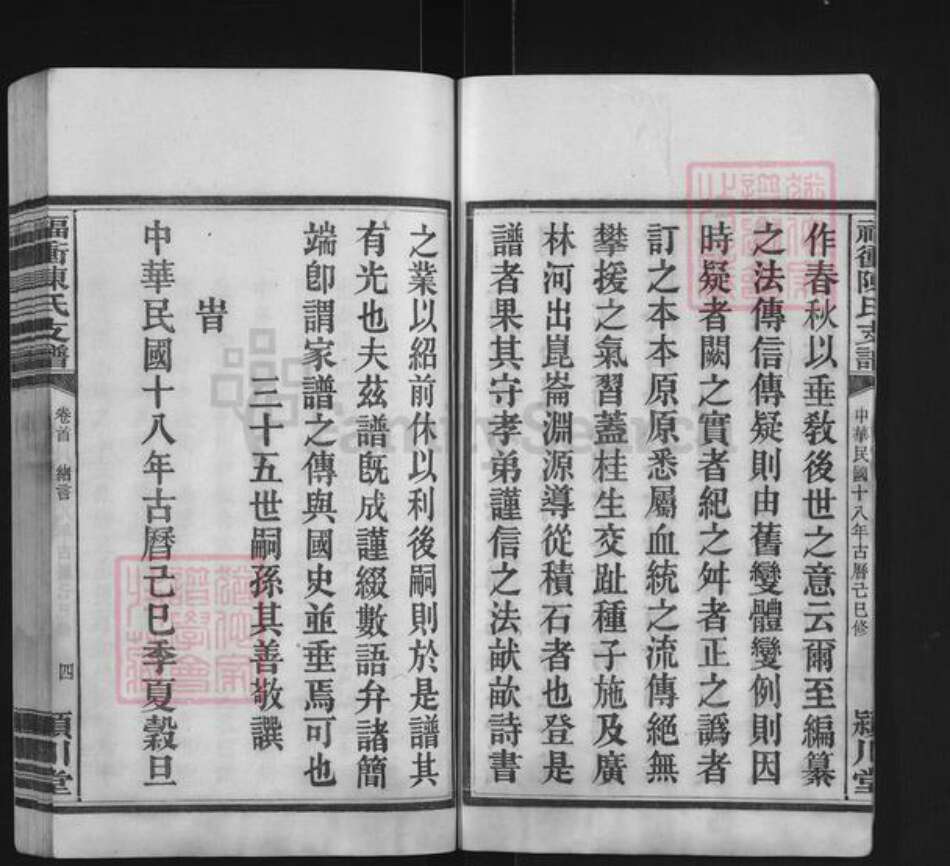 中華民國十八年古曆己巳修
作春秋以垂教後世之意云爾至編纂
之法傳信傳疑則由舊變體變例則因
時疑者闕之實者紀之舛者正之譌者
訂之本本原原悉屬血統之流傳絕無
攀援之氣習蓋桂生交趾種子施及廣
林河出崑崙淵源導從積石者也登是
譜者果其守孝弟謹信之法畝畝詩書
之業以紹前休以利後嗣則於是譜其
有光也夫茲譜旣成謹綴數語弁諸簡
端卽謂家譜之傳與國史並垂焉可也
三十五世嗣孫其善敬譔
旹
中華民國十八年古曆己巳季夏穀旦
福衝陳氏支譜
卷首
緒言
四
潁川堂
FamilySearch